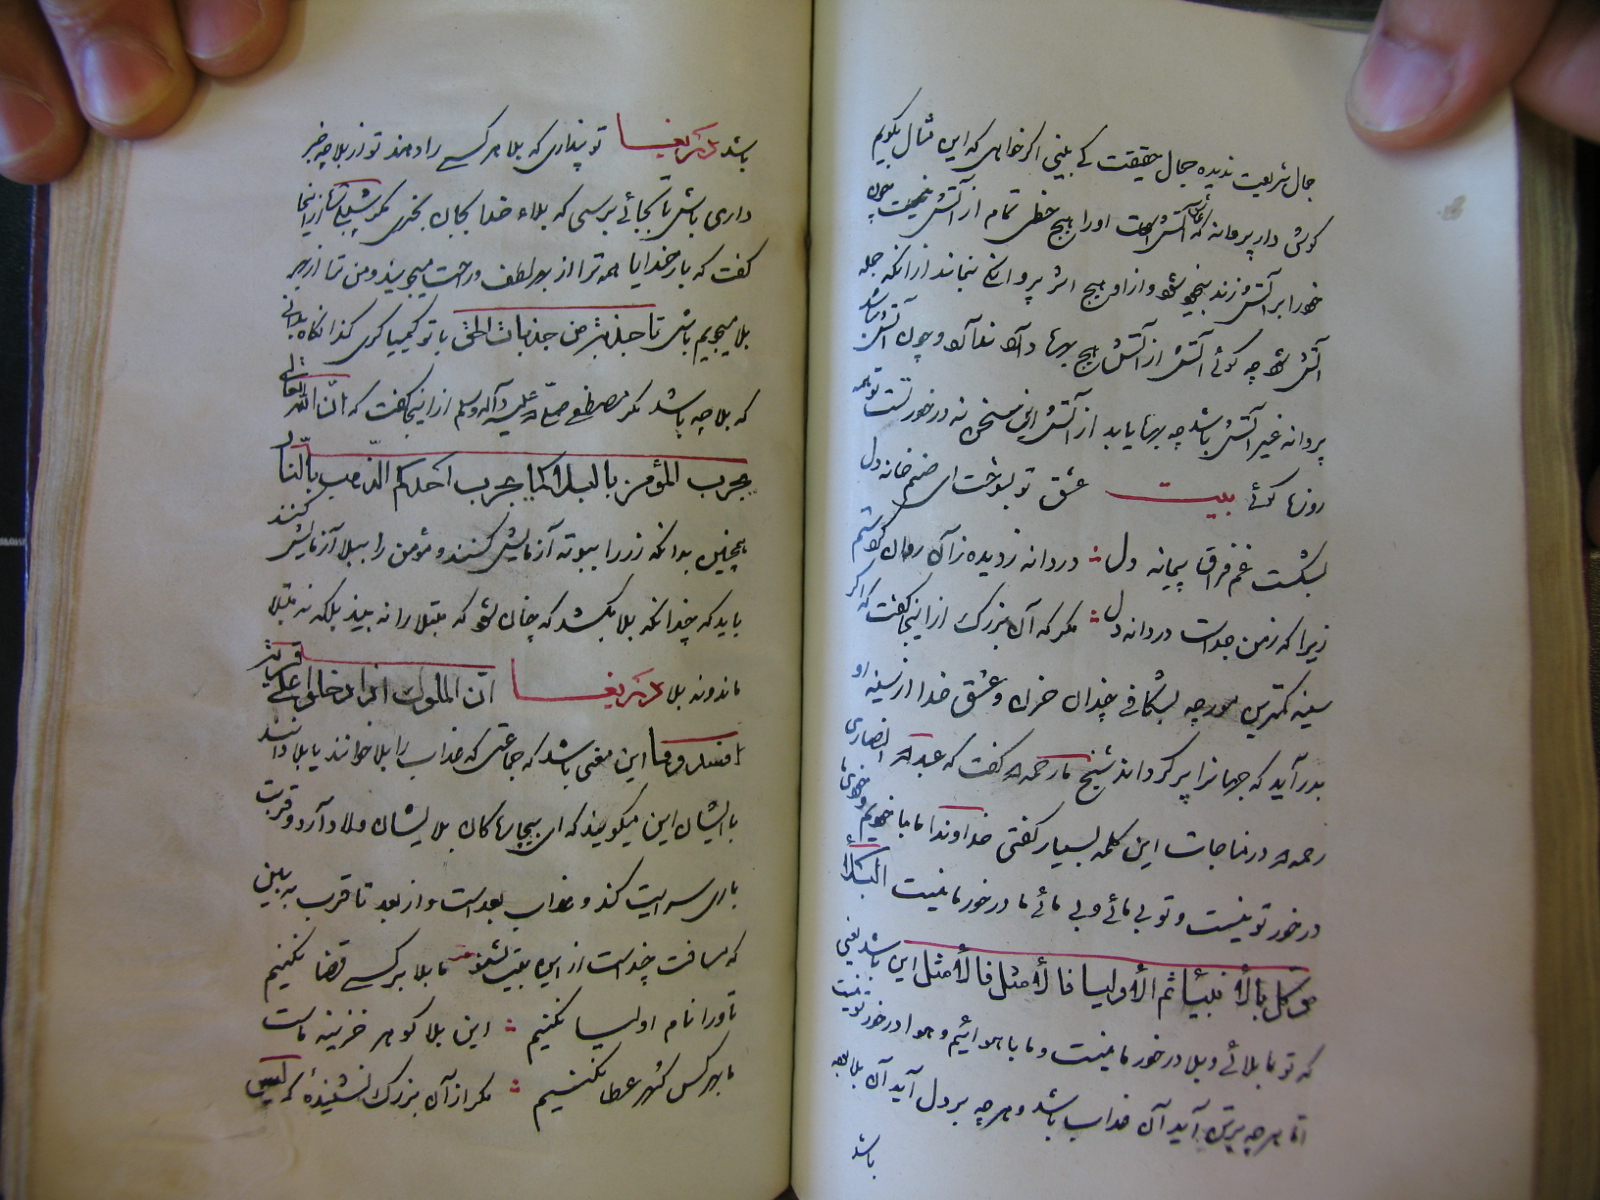 جمال شریعت ندیده جمال حقیقت کے بینی اکر خواهی که این مثال بکویم
کوش دار پروانه که عاشق آتش است اورا هیچ حظی تمام از آتش نیست چون
خودرا بر آتش زند بیخود شود و ازو هیچ اثر پروانکی نماند ازانکه جمله
آتش شود چه کوئی آتش از آتش هیچ بهره دارد ندارد و چون آتش نباشد
پروانه غیر آتش باشد چه بهره یابد از آتش این سخن نه در خور تست تو همه
روزها کوئی بیت عشق تو بسوخت ای صنم خانه دل
بشکست غم فراق پیمانه دل دردانه ز دیده زان روان کردستم
زیرا که ز من جداست دردانه دل مکر که آن بزرک ازینجا کفت که اکر
سینه کمترین مورچه بشکافی چندان حزن و عشق خدا از سینه او
بدر آید که جهانرا پر کرداند شیخ ما رحمه الله کفت که عبدالله انصاری
رحمه الله در مناجات این کلمه بسیار کفتی خداوندا ما با خودیم و خودی ما
در خور تو نیست و تو بی مائے و بی مائے ما در خور ما نیست البلاء
موکل بالأنبیاء ثم الأولیاء فالأمثل فالأمثل این باشد یعنی
که تو با بلائے و بلا در خور ما نیست و ما با هوائیم و هوا در خور تو نیست
اما هر چه بر تن آید آن عذاب باشد و هر چه بر دل آید آن بلا بود
باشد
باشد ای عزیز تو پنداری که بلا هر کسے را دهند تو از بلا چه خبر
داری باش تا بجائے برسی که بلاء خدا بجان بخری مکر شبلی ازینجا
کفت که بار خدایا همه ترا از بهر لطف و راحت میجویند و من ترا از بهر
بلا میجویم باش تا جذبة من جذبات الحق با تو کیمیا کری کند آنکاه بدانی
که بلا چه باشد مکر مصطفے صلی الله علیه وآله وسلم ازینجا کفت که ان الله تعالی
یجرب المؤمن بالبلاء کما یجرب احدکم الذهب بالنار
همچنین بدانکه زر را ببوته آزمایش کنند و مؤمن را ببلا آزمایش کنند
باید که چندانکه بلا بکشد که چنان شود که مبتلا را نه بیند بلکه نه مبتلا
ماند و نه بلا ای عزیز ان الملوک اذا دخلوا قریة
افسدوها این معنی باشد که جماعتی که عذاب را بلا خوانند یا بلا دانند
با ایشان این میکویند که ای بیچارکان بلا نشان ولا دارد و قربت
با وی سرایت کند و عذاب بعد است و از بعد تا قرب به بین
که مسافت چند است از این بیت بشنو ما بلا بر کسے قضا نکنیم
تا ورا نام اولیا نکنیم این بلا کوهر خزینه ماست
ما بهر کس کهر عطا نکنیم مکر از آن بزرک نشنیدۀ که لیس